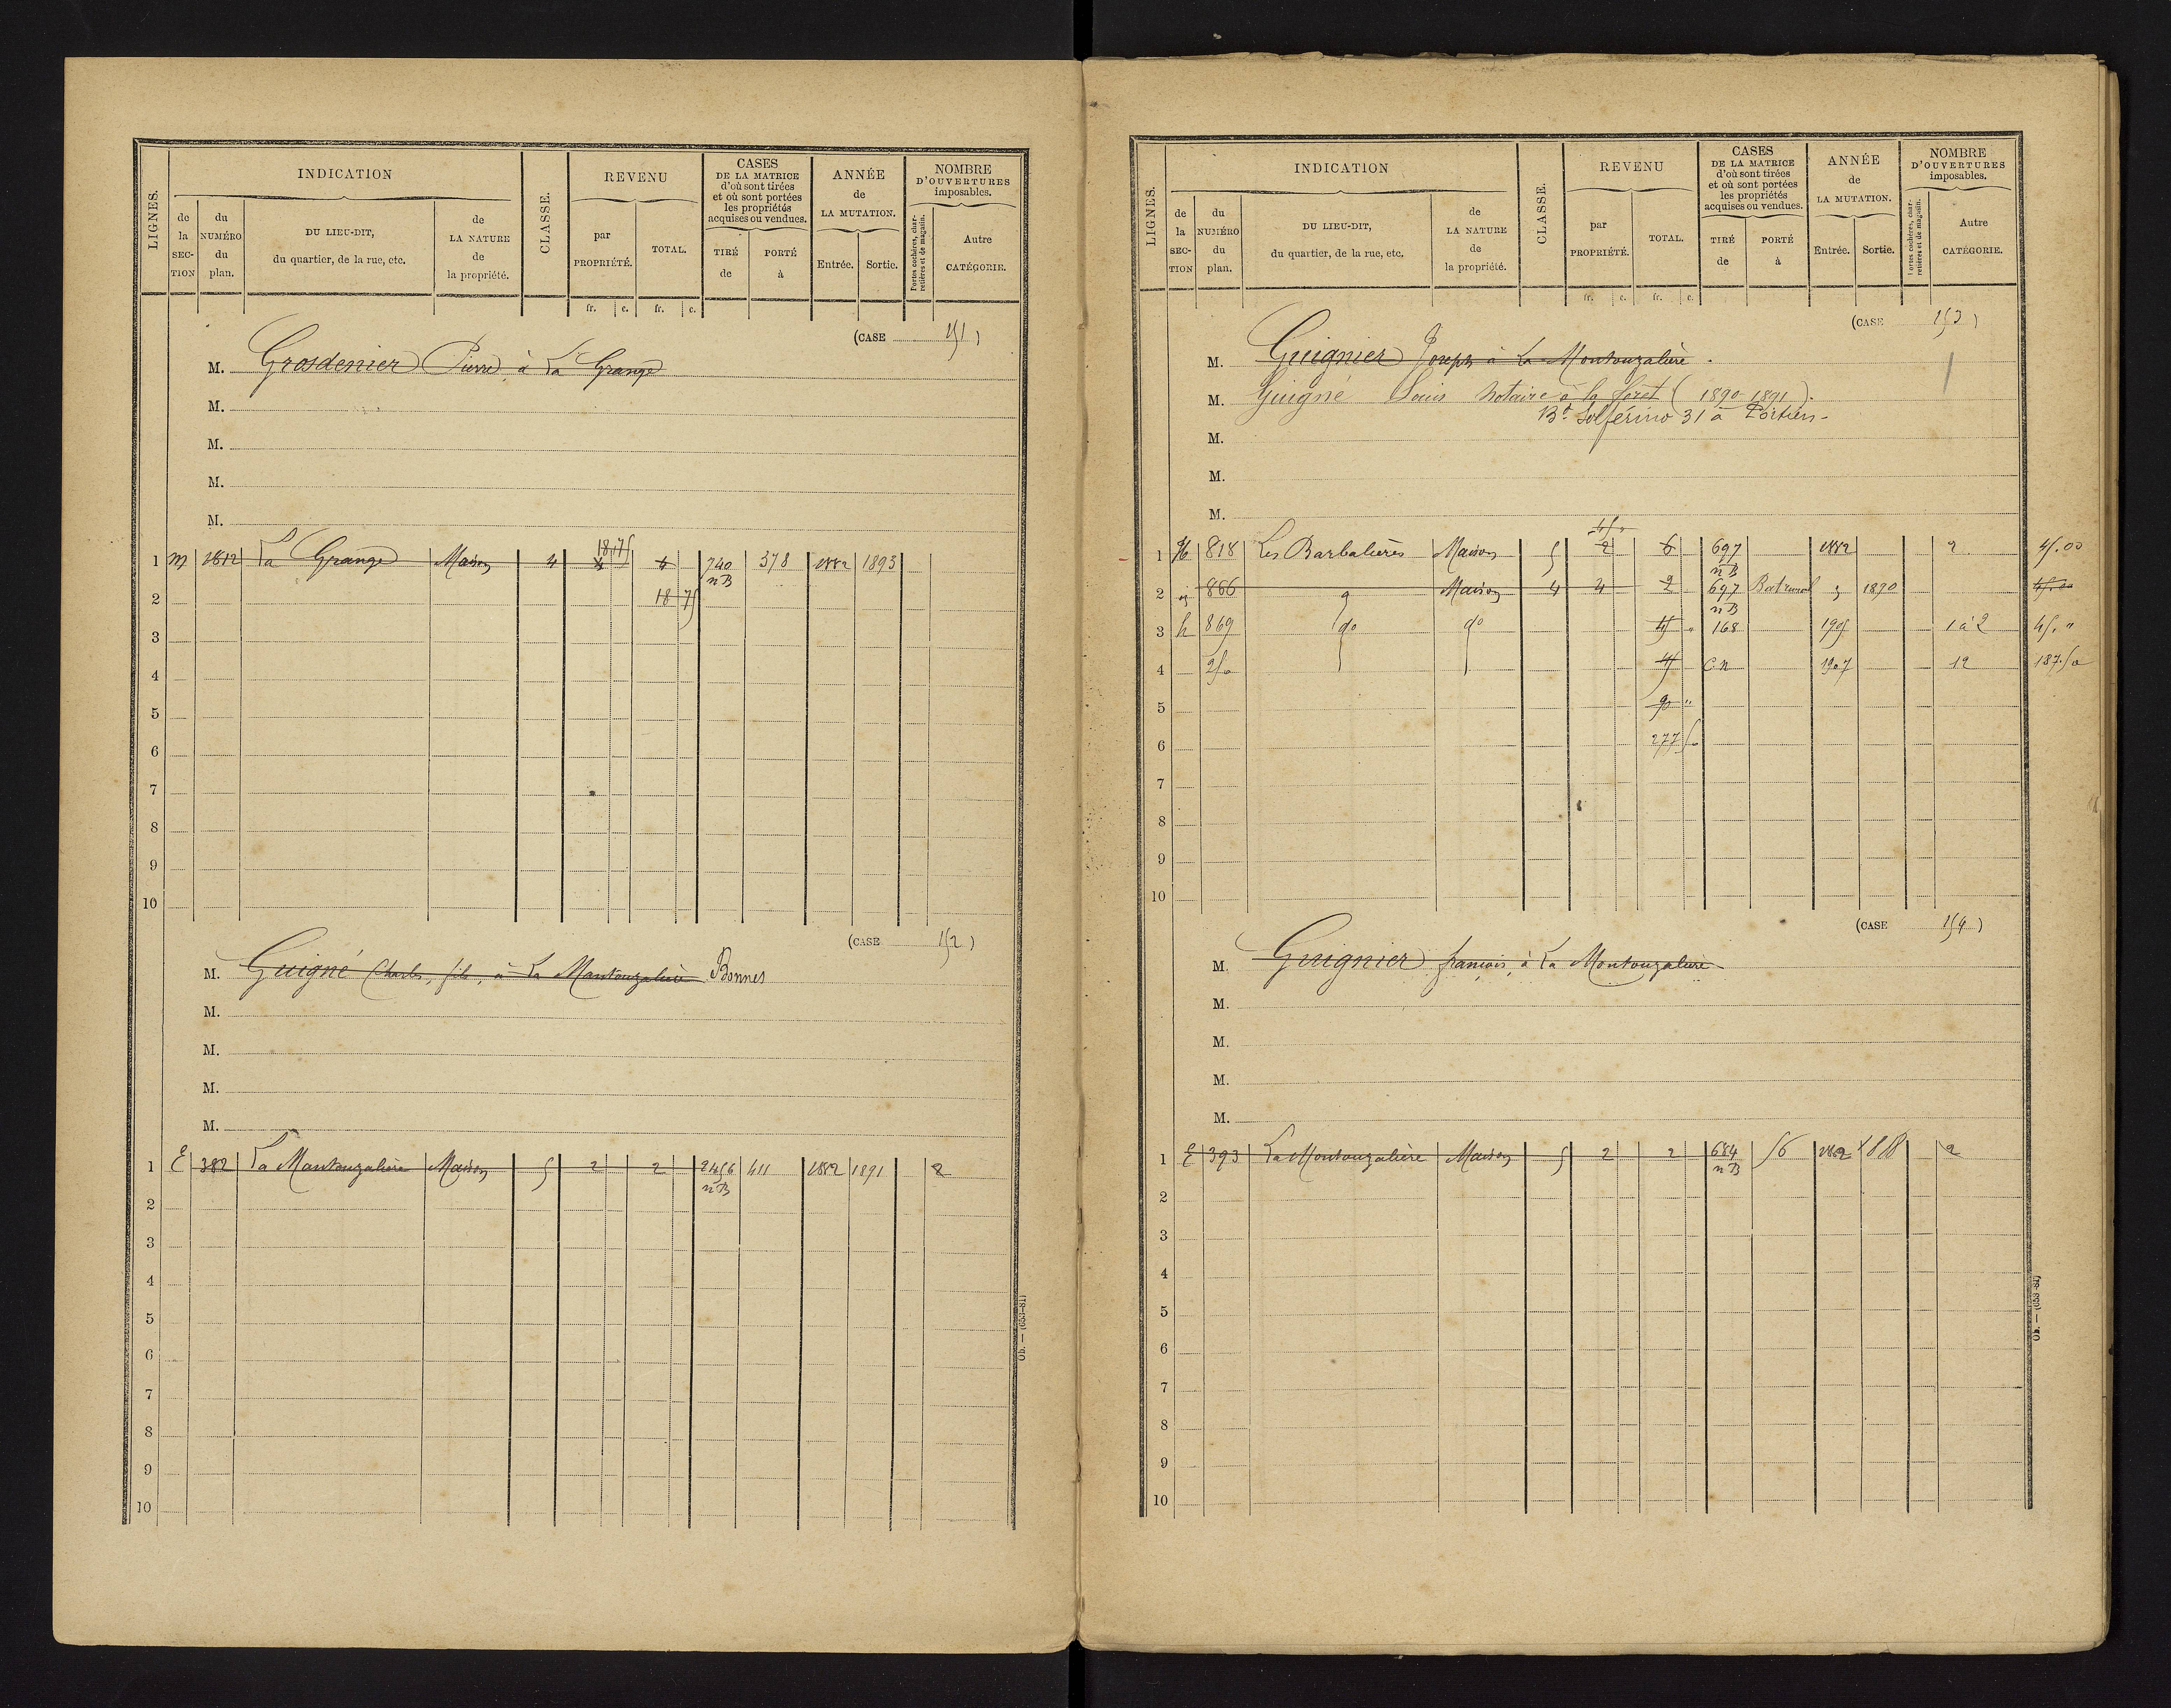 LIGNES.
INDICATION
de la SECTION
du NUMÉRO du plan.
DU LIEU-DIT, du quartier, de la rue, etc.
de LA NATURE de la propriété.
CLASSE.
REVENU
par PROPRIÉTÉ.
TOTAL.
CASES DE LA MATRICE d'où sont tirées et où sont portées les propriétés acquises ou vendues.
TIRÉ de
PORTÉ à
ANNÉE de LA MUTATION.
Entrée.
Sortie.
NOMBRE D'OUVERTURES imposables.
Portes cochères, charretières et de magasin.
Autre CATÉGORIE.
fr. c. fr. c.
(CASE 151)
M. Grosdenier Pierre à La Grange
M.
M.
M.
M.
1 m 1812 La Grange Maison 4 18 75 4 740 nB 378 1882 1893
2 18 75
3
4
5
6
7
8
9
10
(CASE 152)
M. Guigné Charles, fils, à La Montouzalière Bonnes
M.
M.
M.
M.
1 E 382 La Montouzalière Maison 5 2 2 2456 nB 411 1882 1891 2
2
3
4
5
6
7
8
9
10
Ob. — (653-81)
LIGNES.
INDICATION
de la SECTION
du NUMÉRO du plan.
DU LIEU-DIT, du quartier, de la rue, etc.
de LA NATURE de la propriété.
CLASSE.
REVENU
par PROPRIÉTÉ.
TOTAL.
CASES DE LA MATRICE d'où sont tirées et où sont portées les propriétés acquises ou vendues.
TIRÉ de
PORTÉ à
ANNÉE de LA MUTATION.
Entrée.
Sortie.
NOMBRE D'OUVERTURES imposables.
Portes cochères, charretières et de magasin.
Autre CATÉGORIE.
fr. c. fr. c.
(CASE 153)
M. Guignier Joseph à La Montouzalière.
M. Guigné Louis notaire à la foret (1890-1891).
Bd Solférino 31 à Poitiers-
M.
M.
M.
1 818 Les Barbalières Maison 5 45 " 2 6 697 nB 1882 2 45.00
2 866 Maison 4 4 2 697 nB 1890 45.00
3 h 869 do do 45 " 168 1905 1 à 2 45. "
4 250 45 C.n 1907 12 187.50
5 90 "
6 277 50
7
8
9
10
(CASE 154)
M. Guignier francois, à La Montouzalière
M.
M.
M.
M.
1 E 393 La Montouzalière Maison 5 2 2 684 nB 56 1882 2
2
3
4
5
6
7
8
9
10
Ob. — (653-81)